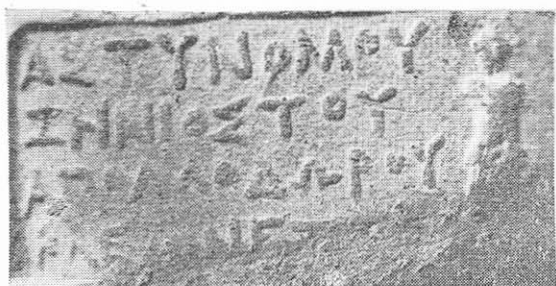 ΑΣΤΥΝΟΜΟΥ
ΖΗΝΙΟΣ ΤΟΥ
ΑΠΟΛΛΟΔΩΡΟΥ